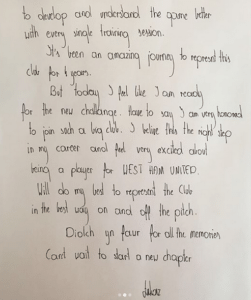 to develop and understand the game better
with every single training session.
It's been an amazing journey to represent this
club for 4 years.
But today I feel like I am ready
for the new challange. Have to say I am very honored
to join such a big club. I belive this the right step
in my career and feel very excited about
being a player for WEST HAM UNITED.
Will do my best to represent the Club
in the best way on and off the pitch.
Diolch yn fawr for all the memories
Can't wait to start a new chapter